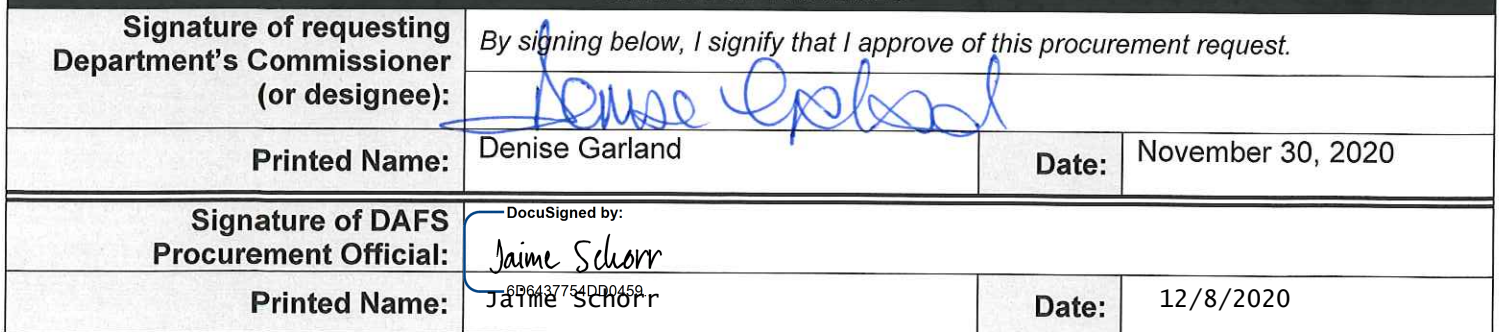 Signature of requesting
Department's Commissioner
(or designee):
By signing below, I signify that I approve of this procurement request.
Denise Garland
Printed Name:
Denise Garland
Date:
November 30, 2020
Signature of DAFS
Procurement Official:
DocuSigned by:
Jaime Schorr
6D6437754DD0459
Printed Name:
Jaime Schorr
Date:
12/8/2020